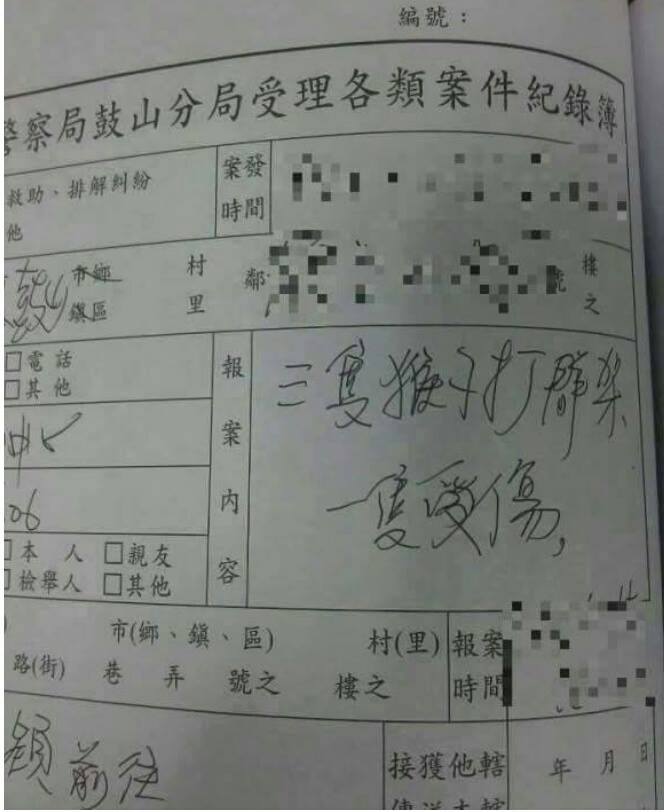 編號：
警察局鼓山分局受理各類案件紀錄簿
救助、排解糾紛
他
案發
時間
鼓
市鄉
鎮區
村
里
鄰
號
樓
之
□電話
□其他
報案內容
三隻猴子打群架
一隻受傷,
06
□本人 □親友
□檢舉人 □其他
市(鄉、鎮、區) 村(里)
路(街) 巷 弄 號之 樓之
報案
時間
前往
接獲他轄
年 月 日